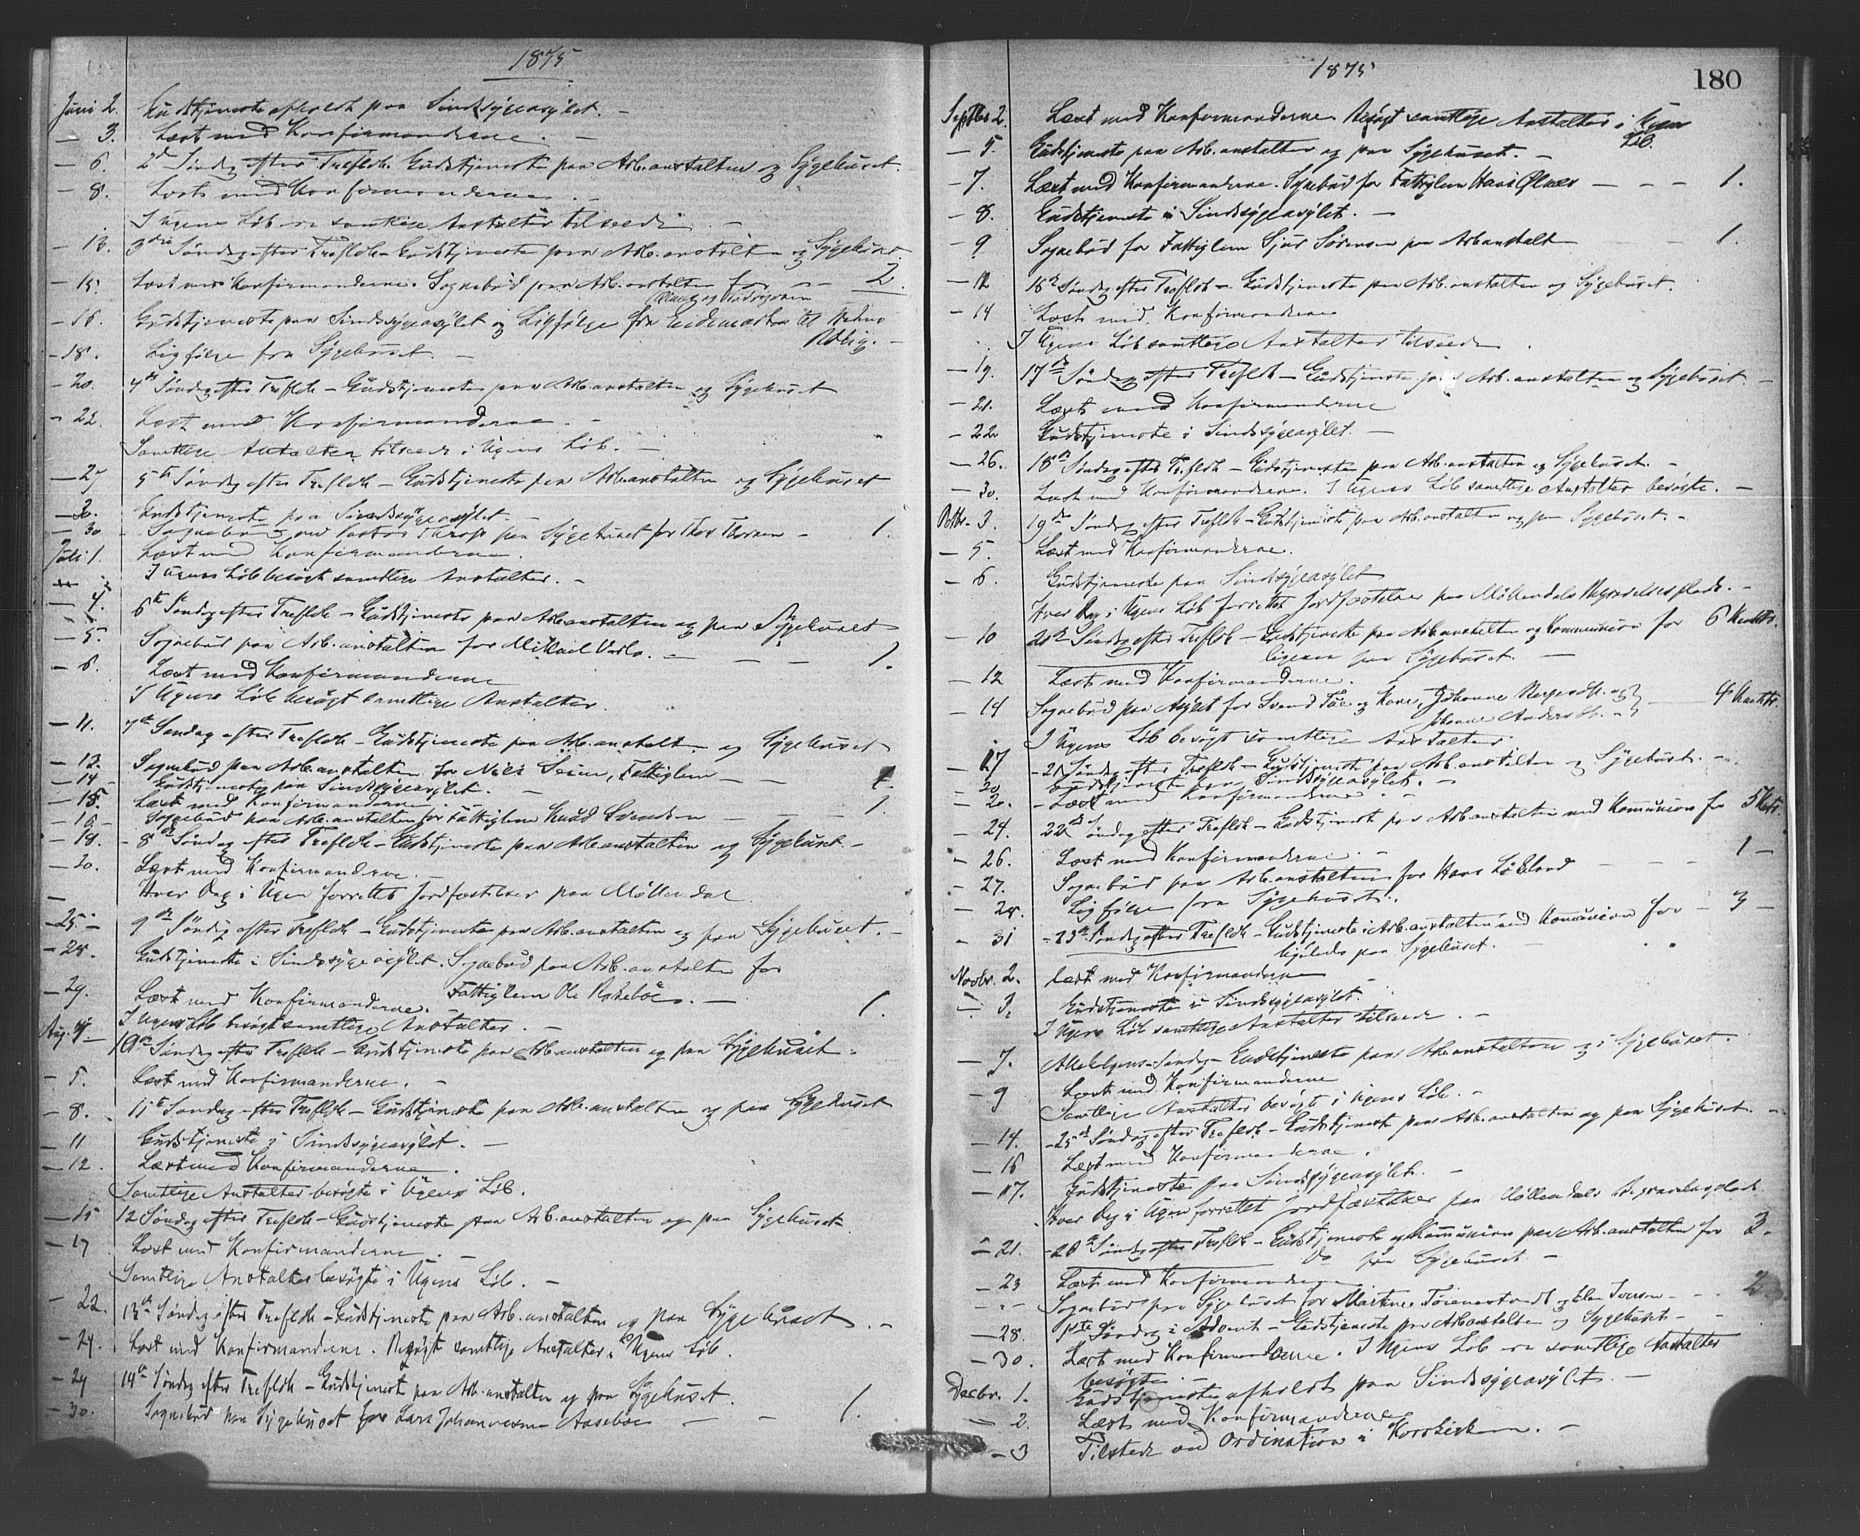 1875
Juni 2. Gudstjeneste afholdt paa Sindssygeasylet. –
– 3. Læst med Konfirmanderne. –
– 6. 2den Søndag efter Trefldh. Gudstjeneste paa Arb.anstalten og Sygehuset.
– 8. Læst med Konfirmanderne. –
I Ugens Løb ere samtlige Anstalter tilseede. –
– 13. 3die Søndag efter Trefldh – Gudstjeneste paa Arb.anstalten og Sygehuset.
– 15. Læst med Konfirmanderne. Sognebud paa Arb.anstalten for – – 2.
– 16. Gudstjeneste paa Sindssygeasylet og Ligfølge fra
– 18. Ligfølge fra Sygehuset –
– 20. 4de Søndag efter Trefldh – Gudstjeneste paa Arb.anstalten og Sygehuset
– 22. Læst med Konfirmanderne. –
Samtlige Anstalter tilseede i Ugens Løb. –
– 27 5te Søndag efter Trefldh – Gudstjeneste paa Arb.anstalten og Sygehuset
– 30. Gudstjeneste paa Sindssygeasylet. –
– 30 Sognebud ved Pastor paa Sygehuset for – 1.
Juli 1. Læst med Konfirmanderne.
I Ugens Løb besøgt samtlige Anstalter. –
– 4. 6te Søndag efter Trefldh – Gudstjeneste paa Arb.anstalten og paa Sygehuset
– 5. Sognebud paa Arb.anstalten for Mikael – – – 1.
– 6. Læst med Konfirmanderne
I Ugens Løb besøgt samtlige Anstalter.
– 11. 7de Søndag efter Trefldh – Gudstjeneste paa Arb.anstalten og Sygehuset
– 12. Sognebud paa Arb.anstalten for Nils Seim, Fattiglem – – 1.
– 14 – Gudstjeneste paa Sindssygeasylet. –
– 15. Læst med Konfirmanderne
– 16 Sognebud paa Arb.anstalten for Fattiglem Knud Svendsen – – 1.
– 18. – 8de Søndag efter Trefldh – Gudstjeneste paa Arb.anstalten og Sygehuset –
– 20. Læst med Konfirmanderne. –
– Hver Dag i Ugen forrettet Jordfæstelser paa Møllendal
– 25 – 9de Søndag efter Trefldh – Gudstjeneste paa Arb.anstalten og paa Sygehuset. –
– 28. Gudstjeneste i Sindssygeasylet. Sognebud paa Arb.anstalten for
Fattiglem Ole – 1.
– 29. Læst med Konfirmanderne.
I Ugens Løb besøgt samtlige Anstalter. –
Aug. 1 – 10de Søndag efter Trefldh – Gudstjeneste paa Arb.anstalten og paa Sygehuset.
– 5. Læst med Konfirmanderne. –
– 8. 11te Søndag efter Trefldh – Gudstjeneste paa Arb.anstalten og paa Sygehuset
– 11 Gudstjeneste i Sindssygeasylet. –
– 12. Læst med Konfirmanderne.
Samtlige Anstalter besøgte i Ugens Løb.
– 15 12 Søndag efter Trefldh – Gudstjeneste paa Arb.anstalten og paa Sygehuset
– 17 Læst med Konfirmanderne. –
Samtlige Anstalter besøgte i Ugens Løb. –
– 22. 13de Søndag efter Trefldh – Gudstjeneste paa Arb.anstalten og paa Sygehuset. –
– 24. Læst med Konfirmanderne. Besøgt samtlige Anstalter i Ugens Løb.
– 29 14de Søndag efter Trefldh – Gudstjeneste paa Arb.anstalten og paa Sygehuset.
– 30. Sognebud paa Sygehuset for Lars Johannesen Aasebøe – – 1.
1875
180
Septbr 2. Læst med Konfirmanderne Besøgt samtlige Anstalter i Ugens Løb.
– 5. Gudstjeneste paa Arb.anstalten og paa Sygehuset. –
– 7. Læst med Konfirmanderne. Sognebud for Fattiglem Hans – – – 1.
– 8. Gudstjeneste i Sindssygeasylet. –
– 9 Sognebud for Fattiglem Sjur Sørensen paa Arb.anstalt – 1.
– 12 16de Søndag efter Trefldh – Gudstjeneste paa Arb.anstalten og Sygehuset.
– 14 Læst med Konfirmanderne
I Ugens Løb samtlige Anstalter tilseede.
– 19. 17de Søndag efter Trefldh – Gudstjeneste paa Arb.anstalten og Sygehuset –
– 21. Læst med Konfirmanderne
– 22 Gudstjeneste i Sindssygeasylet. –
– 26. 18de Søndag efter Trefldh – Gudstjeneste paa Arb.anstalten og Sygehuset. –
– 30. Læst med Konfirmanderne. I Ugens Løb samtlige Anstalter besøgte. –
Oktbr. 3. 19de Søndag efter Trefldh – Gudstjeneste paa Arb.anstalten og paa Sygehuset. –
– 5. Læst med Konfirmanderne.
– 6 Gudstjeneste paa Sindssygeasylet
Hver Dag i Ugens Løb forrettet Jordfæstelser paa Møllendals Begravelsesplads. –
– 10 20de Søndag efter Trefldh – Gudstjeneste paa Arb.anstalten og Kommunion for 6
ligesaa paa Sygehuset. –
– 12 Læst med Konfirmanderne.
– 14 Sognebud paa Asylet for Svend og Kone, Johanne og – 4
Johanne Andersdtr.
I Ugens Løb besøgt samtlige Anstalter
– 17 – 21 Søndag efter Trefldh – Gudstjeneste paa Arb.anstalten og Sygehuset. –
20 Gudstjeneste paa Sindssygeasylet. –
– 20. – Læst med Konfirmanderne –
– 24. 22de Søndag efter Trefldh – Gudstjeneste paa Arb.anstalten med Kommunion for 5
– 26. Læst med Konfirmanderne. –
– 27. Sognebud paa Arb.anstalten for Hans – 1 –
– 28. Ligfølge fra Sygehuset.
– 31 – 23de Søndag efter Trefldh – Gudstjeneste i Arb.anstalten med Komunion for – 3 –
ligeledes paa Sygehuset.
Novbr. 2. Læst med Konfirmanderne
– 3. Gudstjeneste i Sindssygeasylet.
I Ugens Løb samtlige Anstalter tilseede. –
– 7. Allehelgens-Søndag – Gudstjeneste paa Arb.anstalten og i Sygehuset.
– 9 Læst med Konfirmanderne
Samtlige Anstalter besøgt i Ugens Løb. –
– 14. – 25de Søndag efter Trefldh – Gudstjeneste paa Arb.anstalten og paa Sygehuset. –
– 16 Læst med Konfirmanderne.
– 17. Gudstjeneste paa Sindssygeasylet. –
Hver Dag i Ugen forrettet Jordfæstelser paa Møllendals Begravelsesplads.
– 21. – 26de Søndag efter Trefldh – Gudstjeneste og Kommunion paa Arb.anstalten for 3.
Do paa Sygehuset –
– 23 Læst med Konfirmanderne
– – Sognebud paa Sygehuset for Martine og – 2
– 28. 1ste Søndag i Advent – Gudstjeneste paa Arb.anstalten og Sygehuset –
– 30. Læst med Konfirmanderne. I Ugens Løb ere samtlige Anstalter
besøgte. –
Decbr. 1. Gudstjeneste afholdt paa Sindssygeasylet. –
– 2. Læst med Konfirmanderne
– 3 Tilstede ved Ordination i Korskirken. –